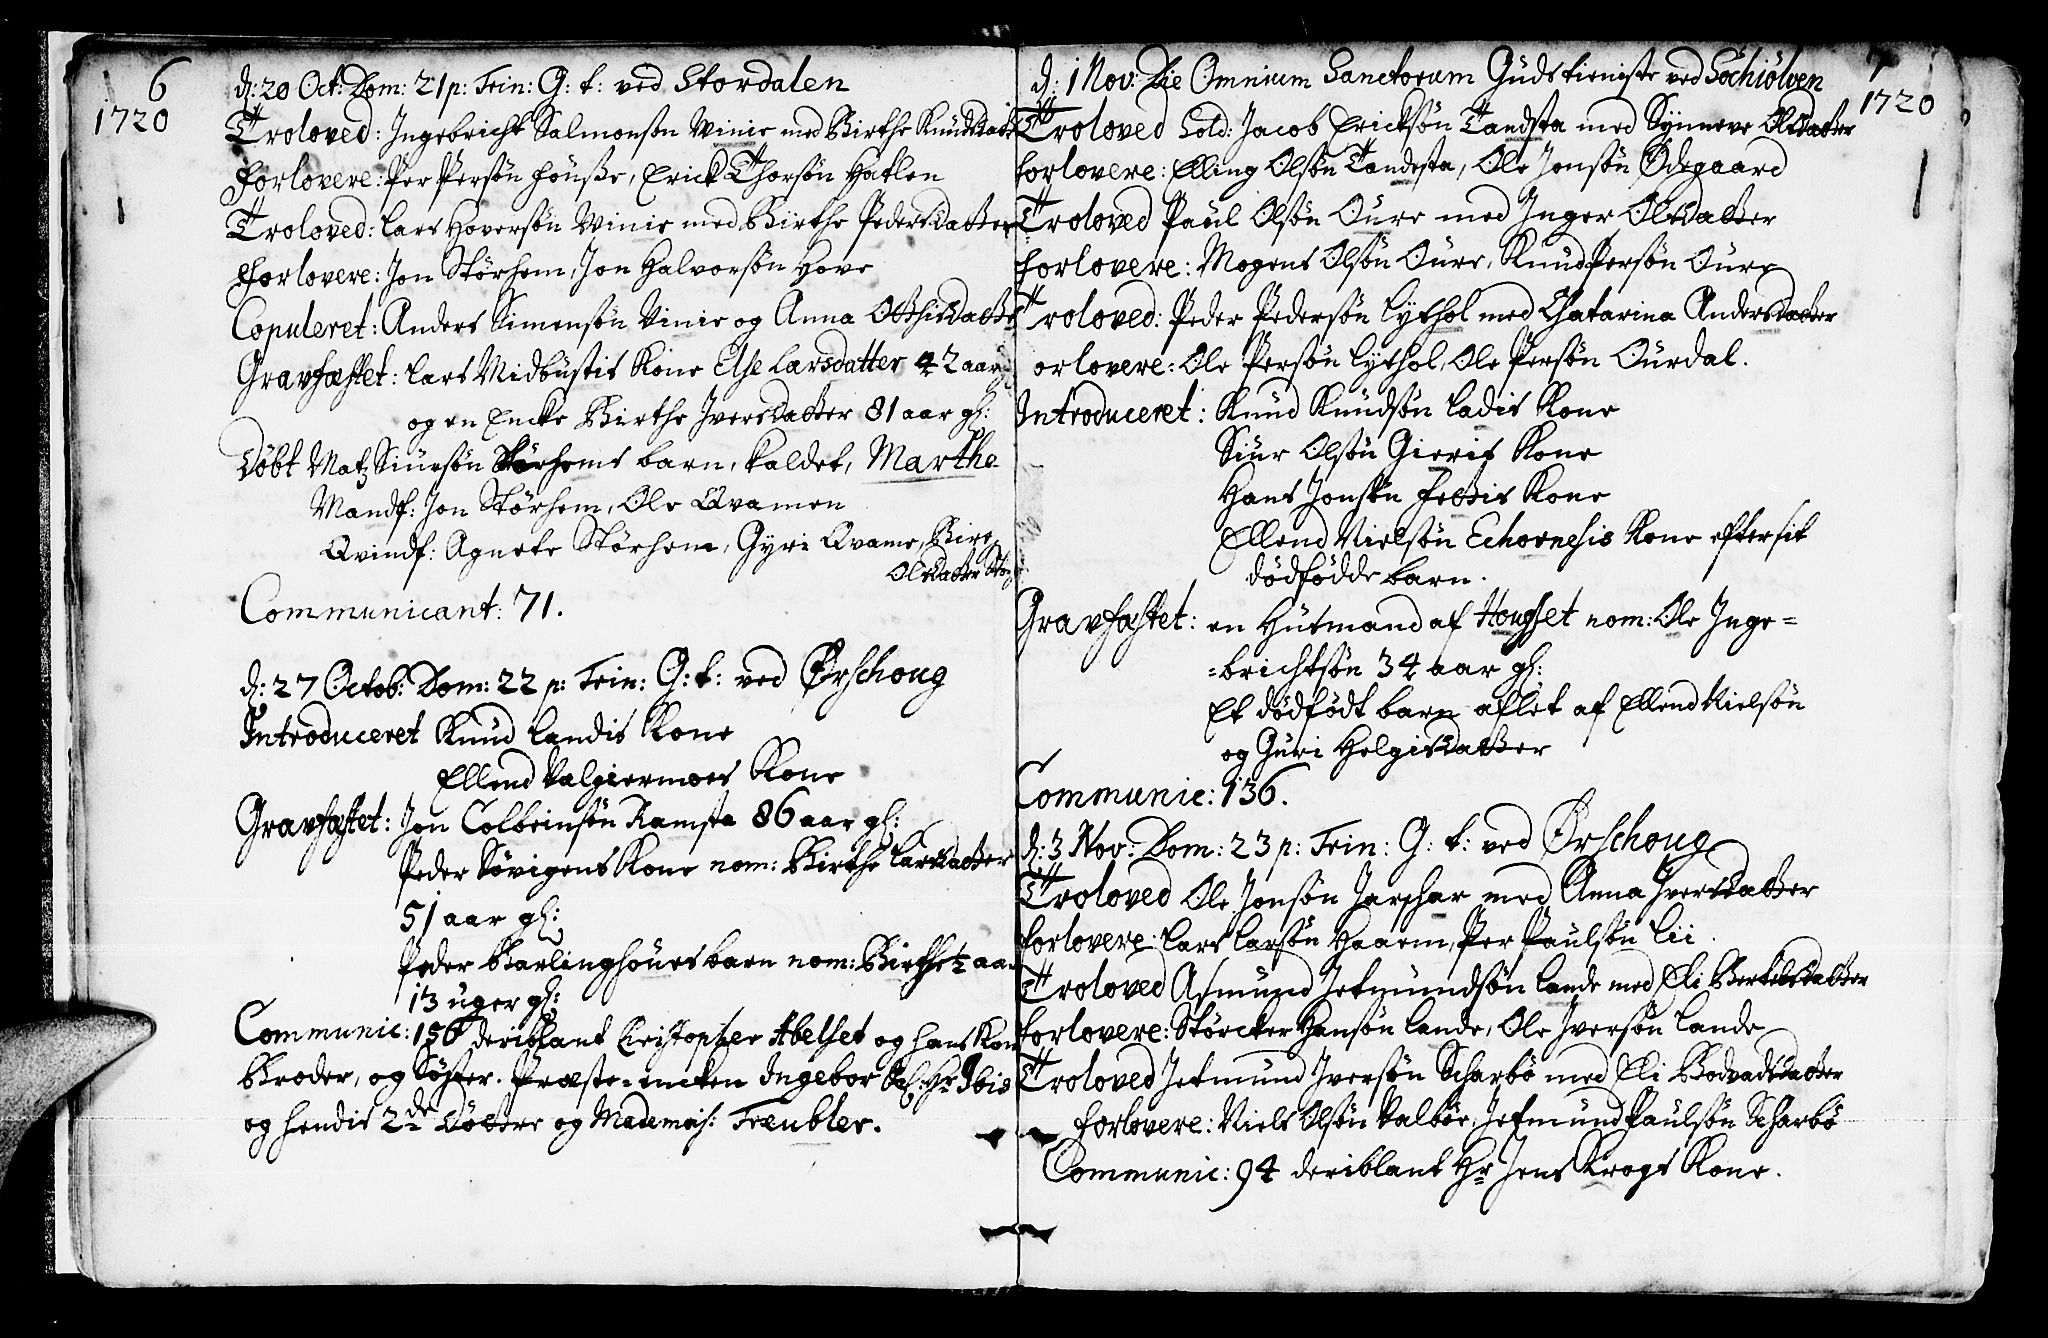 6
1720
d: 20 Oct: Dom: 21 p: Trin: G: t: ved Stordalen
Troloved: Ingebricht Salmonsøn Winie med Birthe Knudsdatter
Forlovere: Per Persøn Housße, Erick Thorsøn Hatlen
Troloved: Lars Hoversøn Winie med Birthe Pedersdatter
Forlovere: Jon Størhem, Jon Halvorsøn Hove
Copuleret: Anders Simensøn Vinie og Anna Otthisdatter
Gravfæstet: Lars Midbustis Kone Else Larsdatter 42 aar
og en Encke Birthe Iversdatter 81 aar gl:
Døbt Matz Siursøn Størhems barn, kaldet, Marthe
Mandf: Jon Størhem, Ole Qvamen
Qvindf: Agnete Størhem, Gyri Qvame, Birte
Olsdatter
Communicant: 71.
d: 27 Octob: Dom: 22 p: Trin: G: t: ved Ørschoug
Introduceret Knud Landis Kone
Ellend Valgiermoes Kone
Gravfæstet: Jon Colbeinsøn Ramsta 86 aar gl:
Peder Søvigens Kone nom: Birthe Larsdatter
51 aar gl:
Peder Barlinghoues barn nom: Birthe ½ aar
13 uger gl:
Communic: 156 deriblant Christopher Abelset og hans Kone
Broder, og Søster. Præste-encken Ingebor Sal: Hr Ibis
og hendis 2de Døttre og Mademois: Treubler.
7
1720
d: 1 Nov: Die Omnium Sanctorum Guds tieniste ved Søchiølven
Troloved Sold: Jacob Ericksøn Tandsta med Synneve Olsdatter
Forlovere: Elling Olsøn Tandesta, Ole Jonsøn Ødegaard
Troloved Paul Olsøn Oure med Inger Olsdatter
Forlovere: Mogens Olsøn Oure, Knud Persøn Oure
Troloved: Peder Pedersøn Lythol med Chatarina Andersdatter
orlovere: Ole Persøn Lythol, Ole Persøn Ourdal.
Introduceret: Knud Knudsøn Ladis Kone
Siur Olsøn Gieris Kone
Hans Jonsøn Fettis Kone
Ellend Nielsøn Echornesis Kone efter sit
dødfødde barn.
Gravfæstet: en Husmand af Hougset nom: Ole Inge=
=brichtsøn 34 aar gl:
Et dødfødt barn aflet af Ellend Nielsøn
og Guri Helgisdatter
Communic: 136.
d: 3 Nov: Dom: 23 p: Trin: G: t: ved Ørschoug
Troloved Ole Jonsøn Jarschar med Anna Iversdatter
Forlovere: Lars Larsøn Haarem, Per Paulsøn Lii
Troloved Asmund Jetmundsøn Lande med Eli Bertelsdatter
Forlovere: Størcker Hansøn Lande, Ole Iversøn Lande
Troloved Jetmund Iversøn Scharbø med Eli Bodvadsdatter
Forlovere: Niels Olsøn Valbøe, Jetmund Paulsøn Scharbø
Communic: 94 deriblant Hr Jens Krogs Kone.